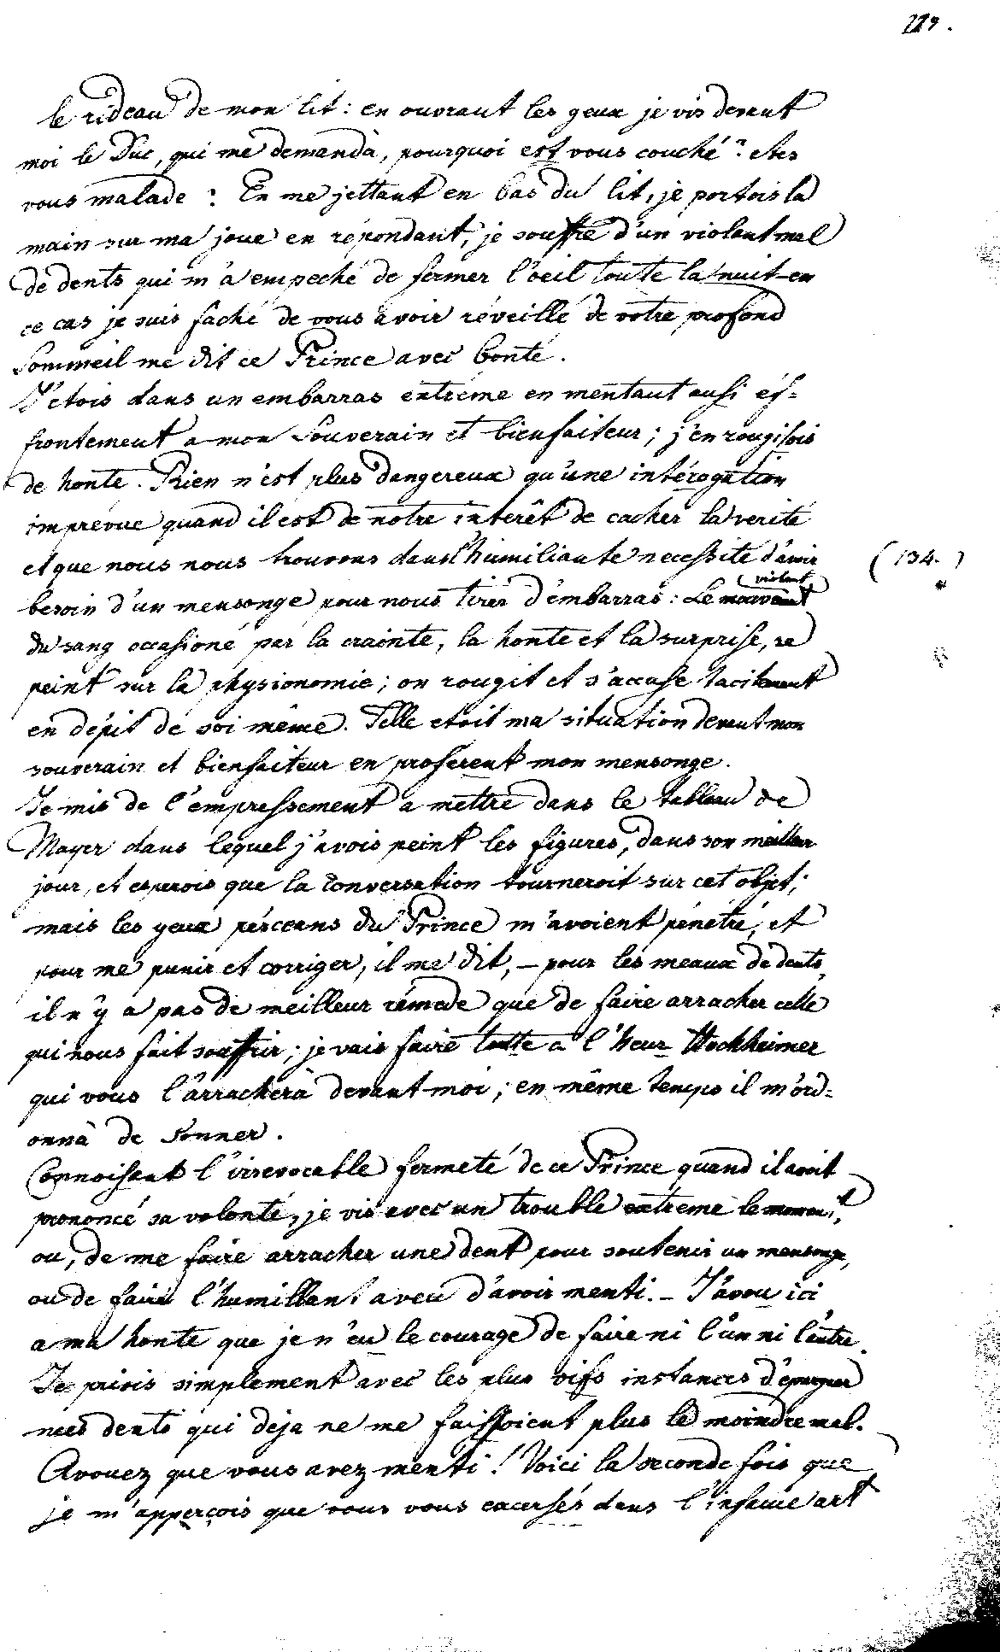 119.
le rideau de mon lit : en ouvrant les yeux je vis devant
moi le Duc, qui me demanda, pourquoi est vous couché ? etes
vous malade ? En me jettant en bas du lit, je portois la
main sur ma joue en répondant, je souffre d'un violant mal
de dents qui m'a empeché de fermer l'oeil toute la nuit - en
ce cas je suis faché de vous avoir réveillé de votre profond
Sommeil me dit ce Prince avec bonté.
J'etois dans un embarras extrème en mentant aussi ef-
frontement a mon Souverain et bienfaiteur ; j'en rougissois
de honte. Rien n'est plus dangereux qu'une intérogation
imprévue quand il est de notre interêt de cacher la verité
et que nous nous trouvons dans l'humiliante necessité d'avoir
(134.)
besoin d'un mensonge pour nous tirer d'embarras : Le violent
du sang occasioné par la crainte, la honte et la surprise, se
peint sur la physionomie ; on rougit et s'accuse tacitement
en dépit de soi même. Telle etoit ma situation devent mon
souverain et bienfaiteur en proferent mon mensonge.
Je mis de l'empressement a mettre dans le tableau de
Mayer dans lequel j'avois peint les figures, dans son meilleur
jour, et esperois que la Conversation tourneroit sur cet objet ;
mais les yeux perceans du Prince m'avoient pénétré, et
pour me punir et corriger, il me dit, - pour les meaux de dents,
il n'y a pas de meilleur rémede que de faire arracher celle
qui nous fait souffrir ; je vais faire toutte a l'heur Hochheimer
qui vous l'arrachera devant moi ; en même temps il m'ord-
onnà de Sonner.
Connoissant l'irrevocable fermeté de ce Prince quand il avoit
prononcé sa volonté, je vis avec un trouble extreme le moment,
ou, de me faire arracher une dent pour soutenir un mensonge,
ou de faire l'humillant aveu d'avoir menti. - J'avou ici
a ma honte que je n'eu le courage de faire ni l'un ni l'autre.
Je priois simplement avec les plus vifs instances d'épargner
mes dents qui deja ne me faissoient plus le moindre mal.
Avouez que vous avez menti ! Voici la seconde fois que
je m'apperçois que vous vous excersés dans l'infame art